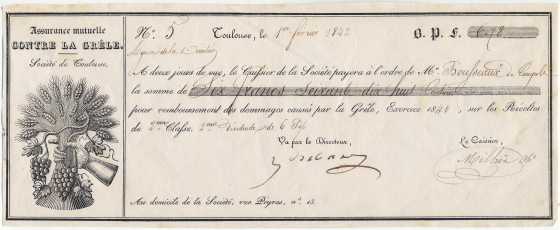 Assurance mutuelle
CONTRE LA GRÊLE.
Société de Toulouse.
N.º 5 Toulouse, le 1er février 1842 B. P. F. 6.78
A deux jours de vue, le Caissier de la Société payera à l'ordre de M.
la somme de Six francs Soixante dix huit
pour remboursement des dommages causés par la Grêle, Exercice 1841, sur les Récoltes
de 2me Classe, 2me
Vu par le Directeur,
Le Caissier,
Au domicile de la Société, rue Peyras, n.º 15.